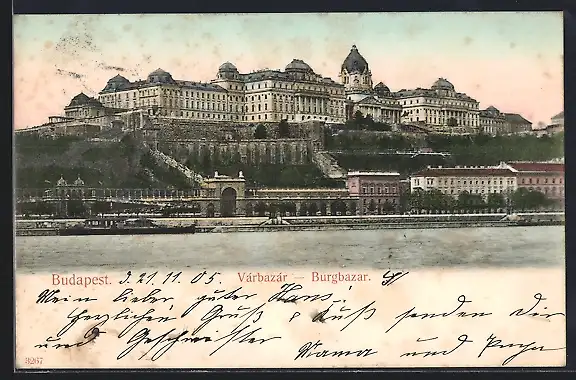 Budapest. d. 21. 11. 05. Várbazár — Burgbazar.
Mein lieber, guter Hans!
Herzlichen Gruß u. Kuß senden Dir
und Geschwister
Mama und Papa
3267